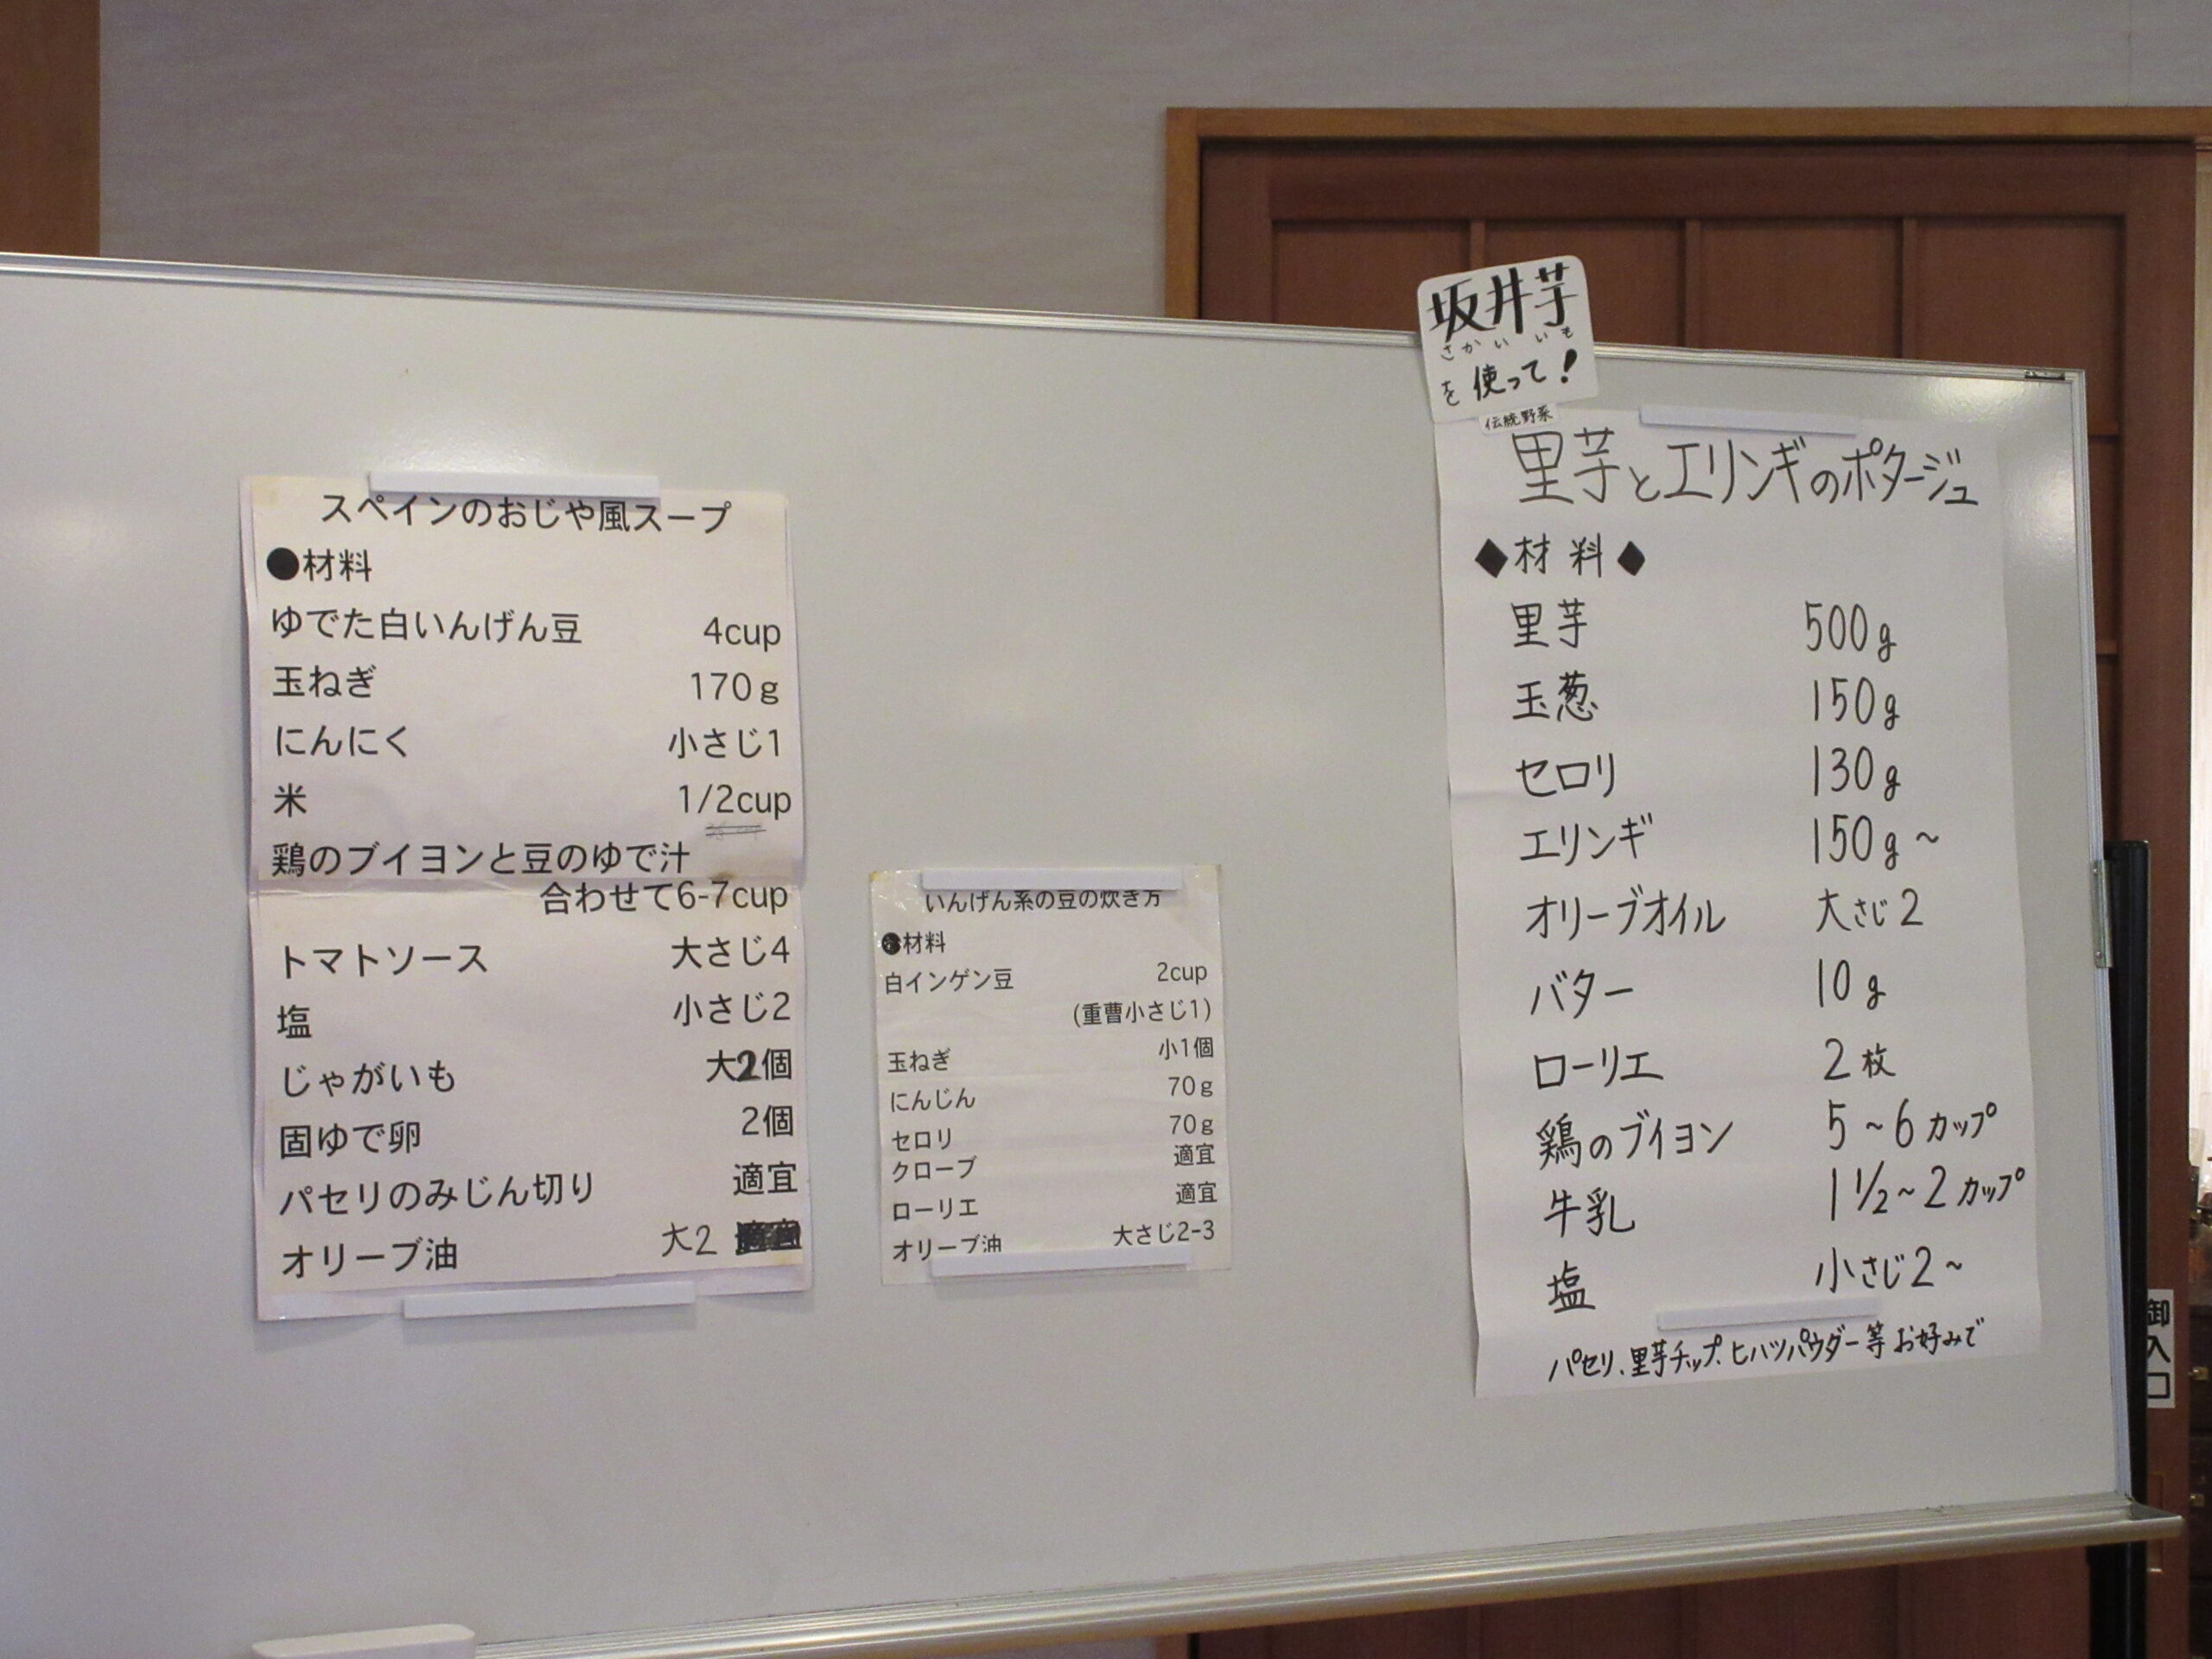 スペインのおじや風スープ
●材料
ゆでた白いんげん豆 4cup
玉ねぎ 170g
にんにく 小さじ1
米 1/2cup
鶏のブイヨンと豆のゆで汁
合わせて6-7cup
トマトソース 大さじ4
塩 小さじ2
じゃがいも 大2個
固ゆで卵 2個
パセリのみじん切り 適宜
オリーブ油 大2
いんげん系の豆の炊き方
●材料
白インゲン豆 2cup
(重曹小さじ1)
玉ねぎ 小1個
にんじん 70g
セロリ 70g
クローブ 適宜
ローリエ 適宜
オリーブ油 大さじ2-3
坂井芋
さかいいも
を使って!
伝統野菜
里芋とエリンギのポタージュ
◆材料◆
里芋 500g
玉葱 150g
セロリ 130g
エリンギ 150g~
オリーブオイル 大さじ2
バター 10g
ローリエ 2枚
鶏のブイヨン 5~6カップ
牛乳 1 1/2~2カップ
塩 小さじ2~
パセリ、里芋チップ、ヒハツパウダー等お好みで
御入口